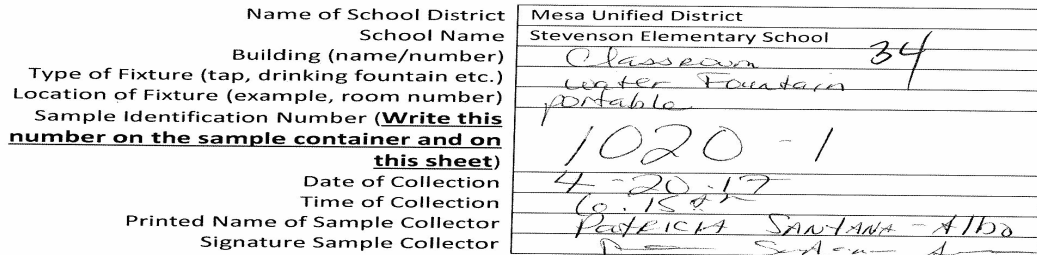 Name of School District Mesa Unified District
School Name Stevenson Elementary School
Building (name/number) Classroom 34
Type of Fixture (tap, drinking fountain etc.) water Fountain
Location of Fixture (example, room number) portable
Sample Identification Number (Write this
number on the sample container and on
this sheet) 1020-1
Date of Collection 4-20-17
Time of Collection 6.15
Printed Name of Sample Collector PatRICIA SANTANA-Albo
Signature Sample Collector